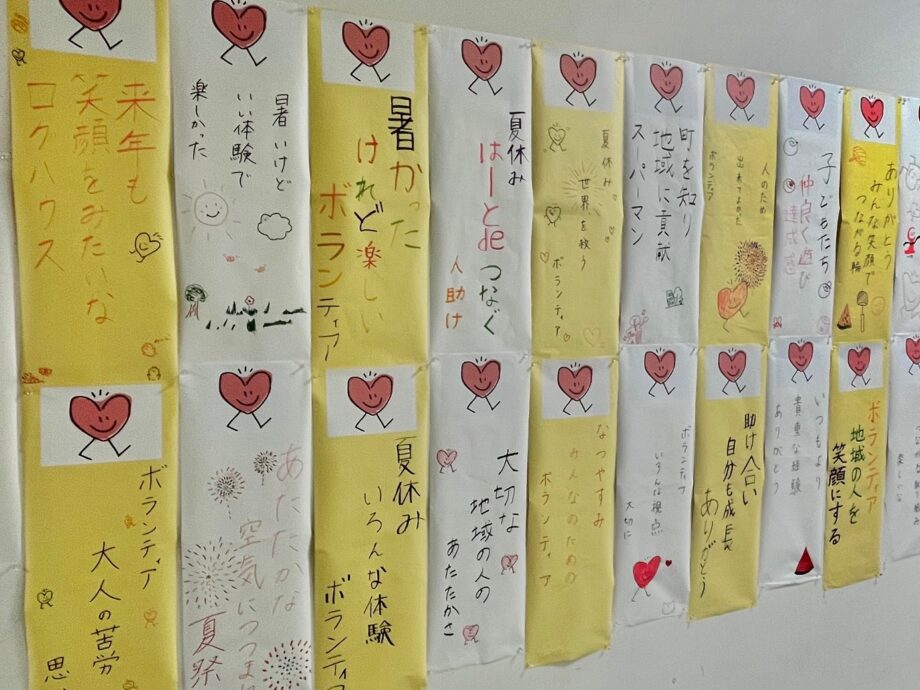 来年も
笑顔をみたいな
コクハウス
暑いけど
いい体験で
楽しかった
暑かった
けれど楽しい
ボランティア
夏休み
はーとde つなぐ
人助け
夏休み
世界を救う
ボランティア
町を知り
地域に貢献
スーパーマン
人のため
出来てよかった
ボランティア
子どもたち
仲良く遊び
達成感
ありがとう
みんな笑顔で
つながる輪
ボランティア
大人の苦労
夏休み
いろんな体験
ボランティア
あたたかな
空気につつま
夏祭
大切な
地域の人の
あたたかさ
なつやすみ
みんなのための
ボランティア
ボランティア
いろんな視点
大切に
助け合い
自分も成長
ありがとう
いつもより
貴重な経験
ありがとう
ボランティア
地域の人を
笑顔にする